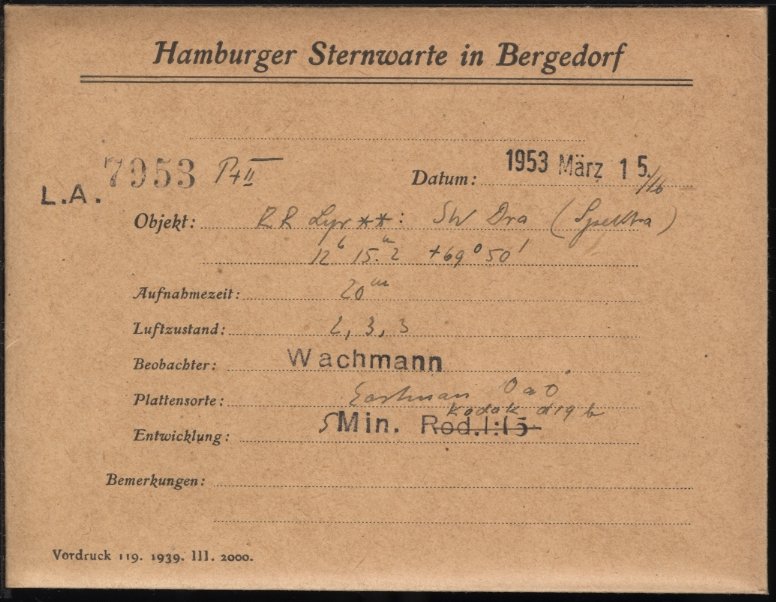 Hamburger Sternwarte in Bergedorf
L.A. 7953 P+II
Datum: 1953 März 15./16
Objekt: RR Lyr **: SW Dra (Spektra)
12h 15m.2 +69° 50'
Aufnahmezeit: 20m
Luftzustand: 2, 3, 3
Beobachter: Wachmann
Plattensorte: Eastman OaO
Kodak D19b
Entwicklung: 5 Min. Rod.1:15
Bemerkungen:
Vordruck 119. 1939. III. 2000.